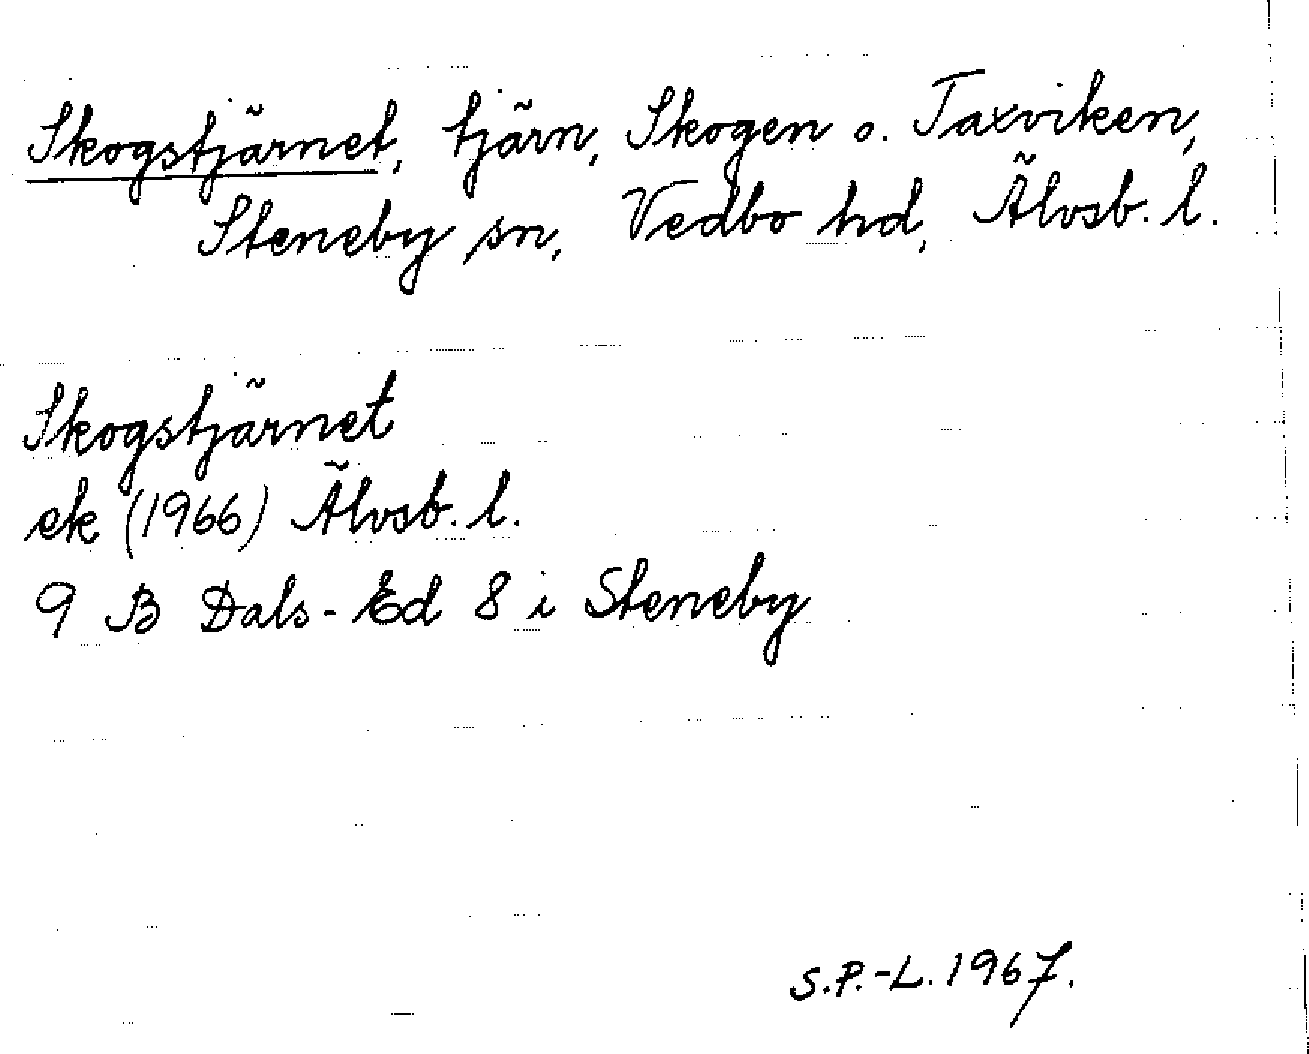 Skogstjärnet, tjärn, Skogen o. Taxviken,
Steneby sn, Vedbo hd, Älvsb. l.
Skogstjärnet
ek (1966) Älvsb. l.
9 B Dals-Ed 8 i Steneby
S.P.-L. 1967.